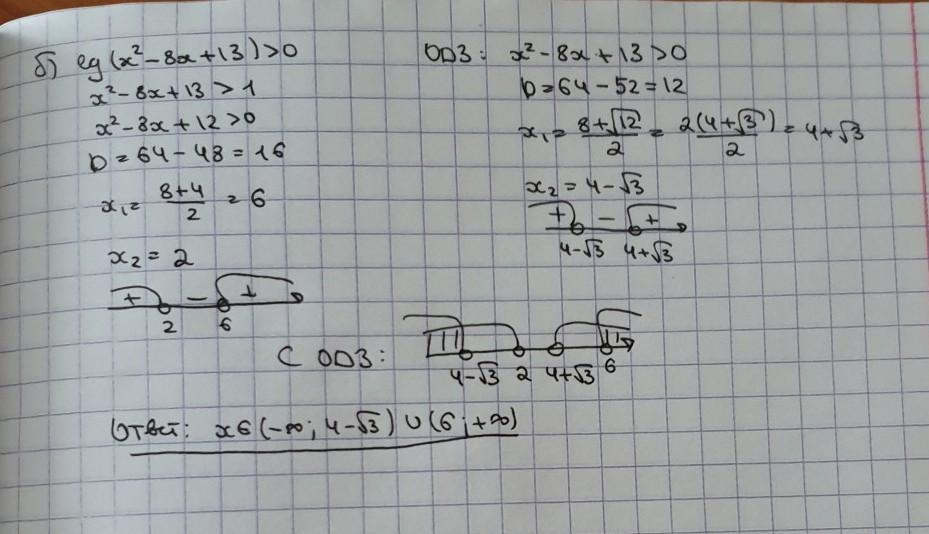 б) lg(x² - 8x + 13) > 0
x² - 8x + 13 > 1
x² - 8x + 12 > 0
D = 64 - 48 = 16
x₁ = (8+4)/2 = 6
x₂ = 2
+ - +
2 6
ОДЗ: x² - 8x + 13 > 0
D = 64 - 52 = 12
x₁ = (8+√12)/2 = 2(4+√3)/2 = 4+√3
x₂ = 4-√3
+ - +
4-√3 4+√3
С ОДЗ:
4-√3 2 4+√3 6
Ответ: x∈(-∞; 4-√3) ∪ (6; +∞)